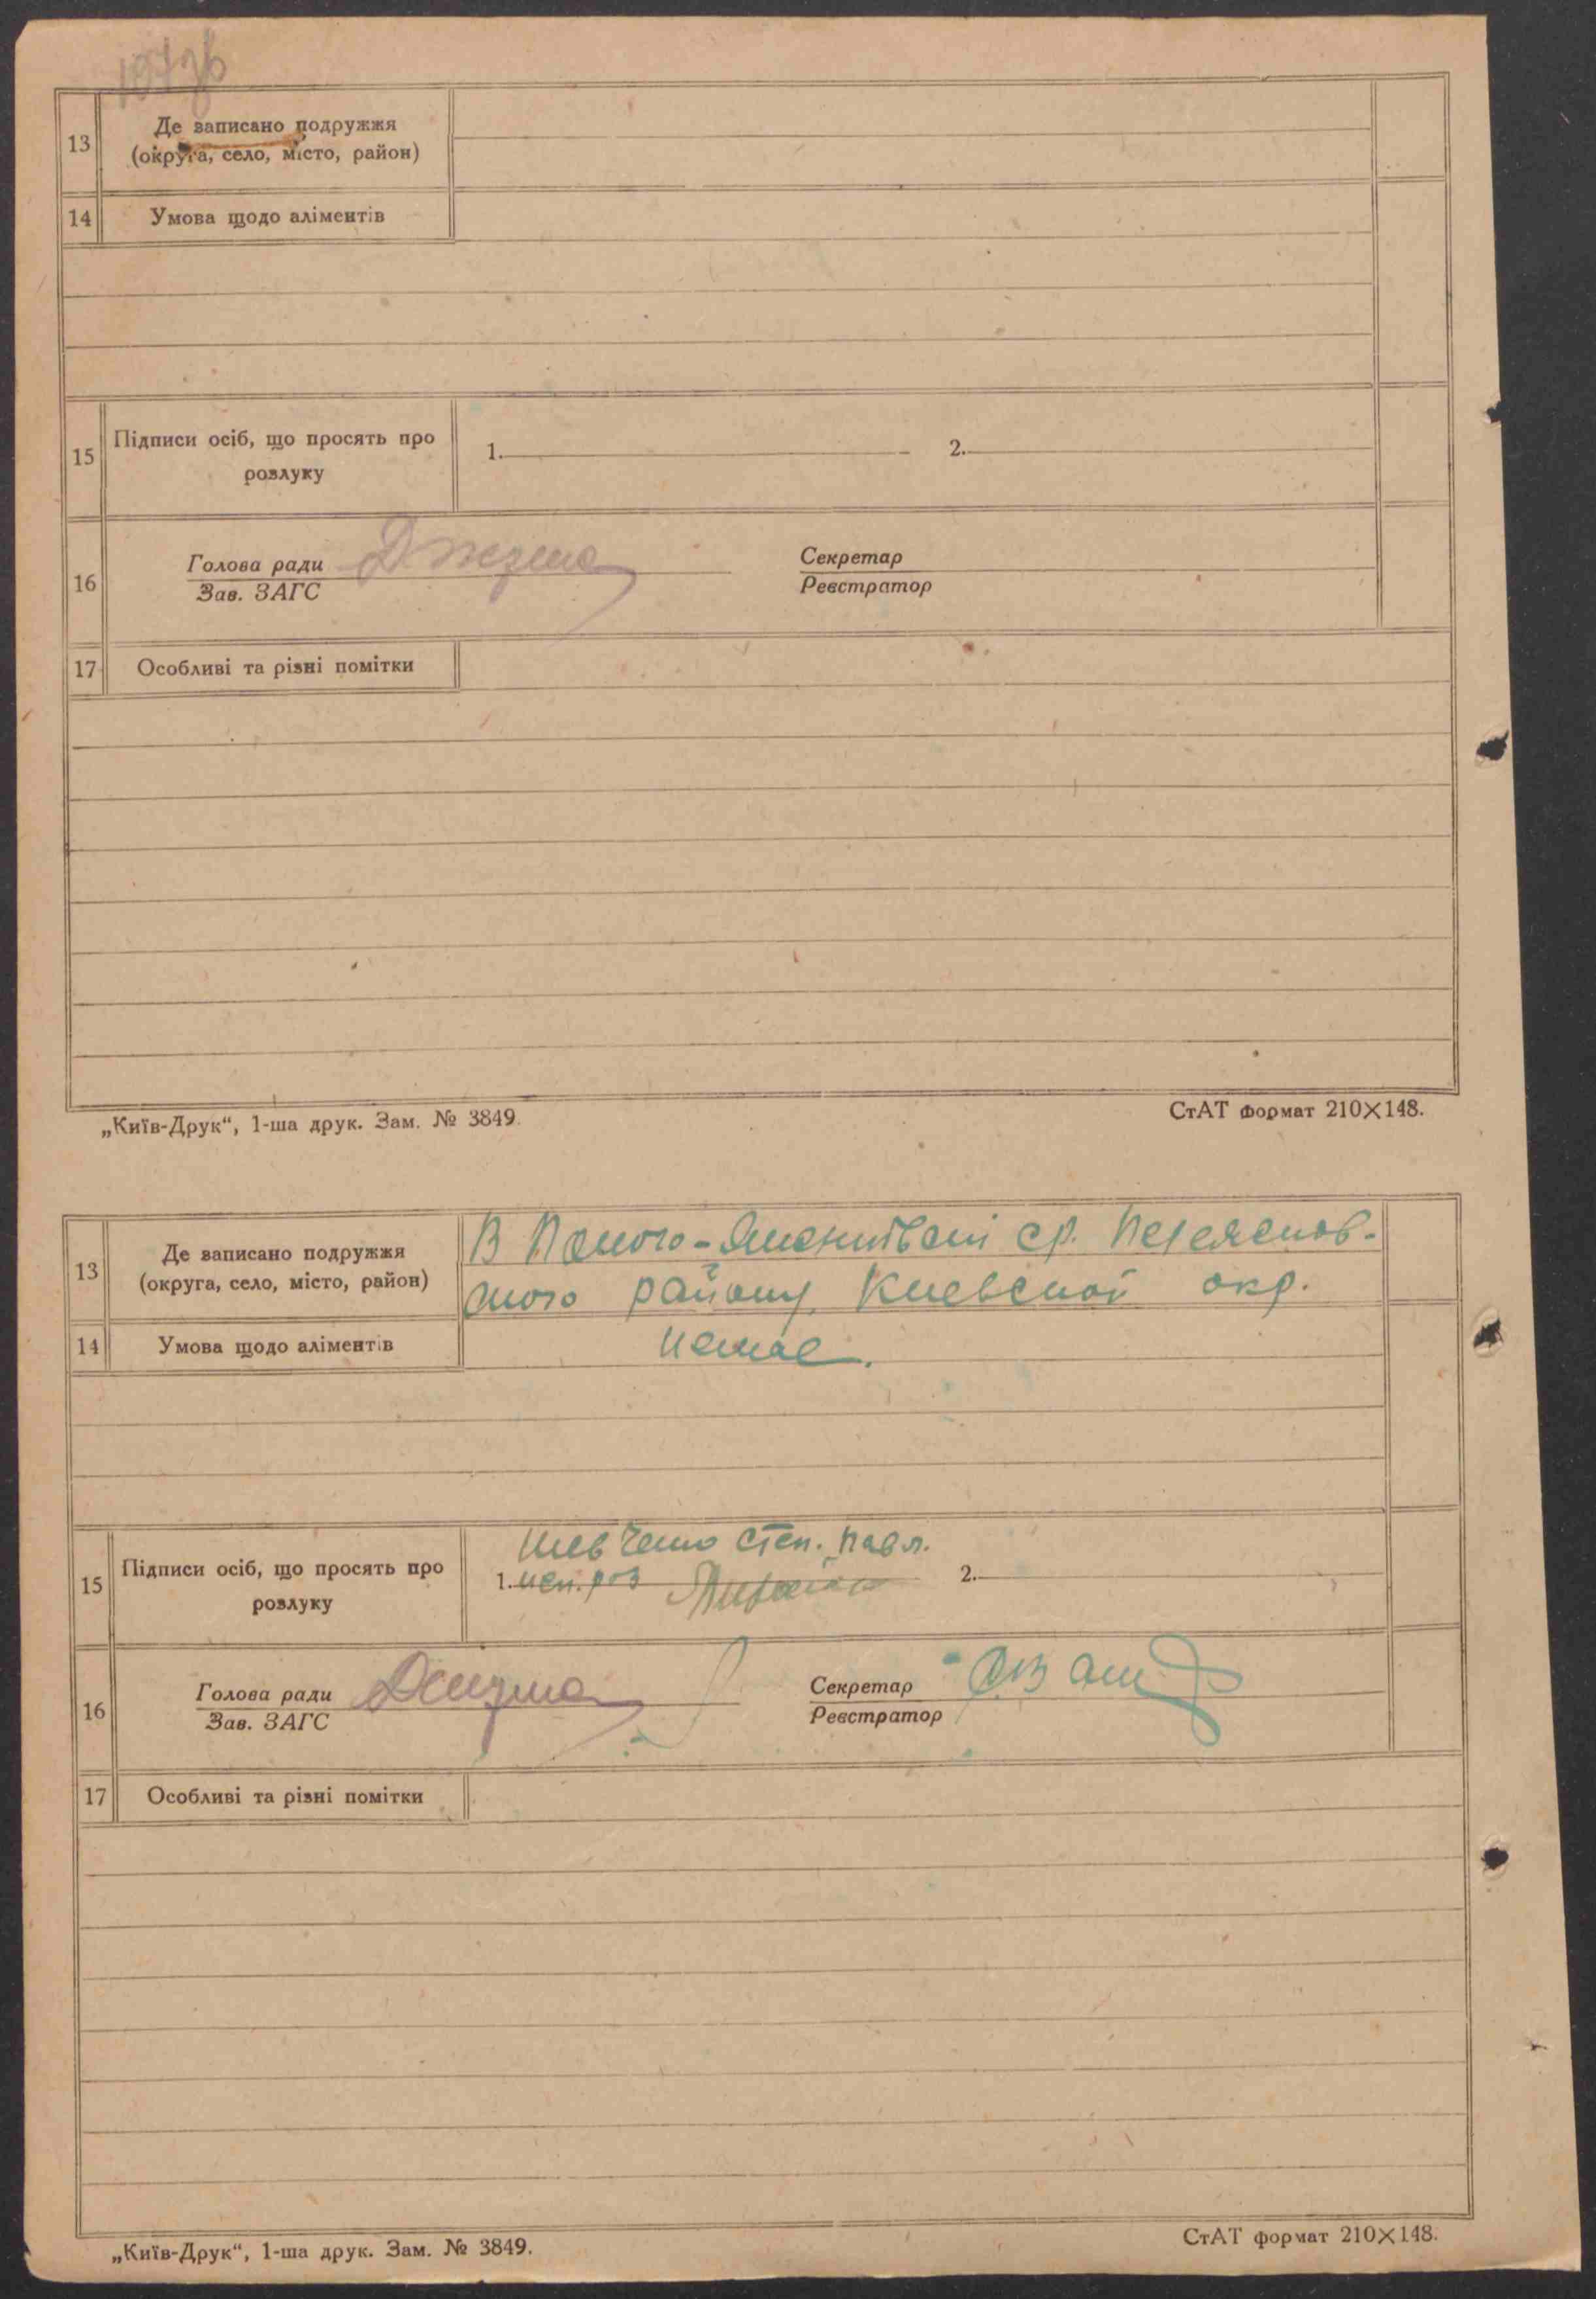 13
Де записано подружжя
(округа, село, місто, район)
14
Умова щодо аліментів
15
Підписи осіб, що просять про
розлуку
1.
2.
16
Голова ради
Зав. ЗАГС
Секретар
Реєстратор
17
Особливі та різні помітки
„Київ-Друк“, 1-ша друк. Зам. № 3849.
СтАТ формат 210×148.
13
Де записано подружжя
(округа, село, місто, район)
В ср. Переяслов-
ського району Киевской окр.
14
Умова щодо аліментів
немае.
15
Підписи осіб, що просять про
розлуку
Шевченко Степ. Павл.
1.
2.
16
Голова ради
Зав. ЗАГС
Секретар
Реєстратор
17
Особливі та різні помітки
„Київ-Друк“, 1-ша друк. Зам. № 3849.
СтАТ формат 210×148.